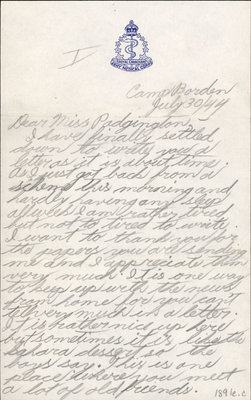 ROYAL CANADIAN
ARMY MEDICAL CORPS
I
Camp Borden
July 30/44
Dear Miss Padgington,
I have finally settled
down to write you a
letter as it is about time.
As I just got back from a
scheme this morning and
hardly having any sleep
all week I am rather tired
but not to tired to write.
I want to thank you for
the papers you are sending
me and I appreciate them
very much. It is one way
to keep up with the news
from home for you can't
tell very much in a letter.
It is rather nice up here
but sometimes it is like the
sahara dessert so the
boys say. This is one
place where you meet
a lot of old friends.
189 6c.c